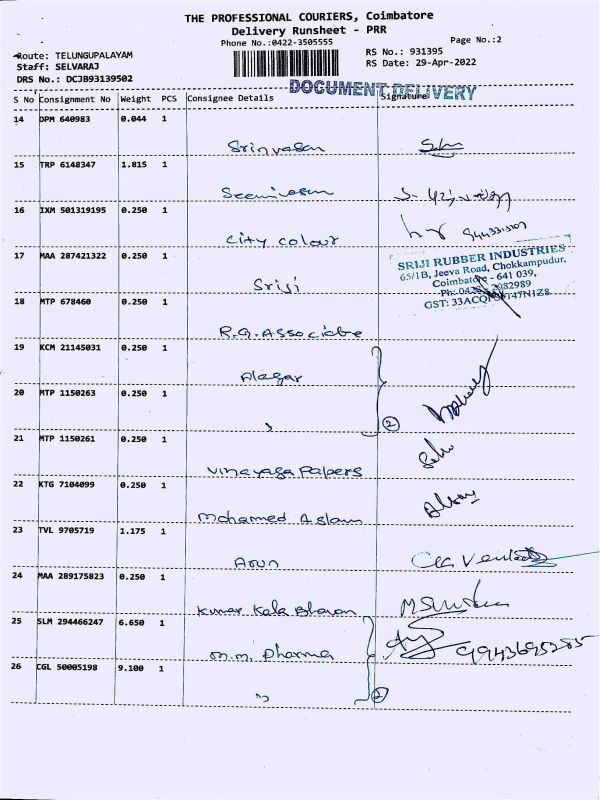 THE PROFESSIONAL COURIERS, Coimbatore
Delivery Runsheet - PRR
Phone No.:0422-3505555
Page No.:2
Route: TELUNGUPALAYAM
RS No.: 931395
Staff: SELVARAJ
RS Date: 29-Apr-2022
DRS No.: DCJB93139502
DOCUMENT DELIVERY
S No Consignment No Weight PCS Consignee Details Signature
14 DPM 640983 0.044 1
Srinvasan
15 TRP 6148347 1.815 1
Seenivasan
16 IXM 501319195 0.250 1
City colour
17 MAA 287421322 0.250 1
SRIJI RUBBER INDUSTRIES
65/1B, Jeeva Road, Chokkampudur,
Coimbatore - 641 039.
Sriji
18 MTP 678460 0.250 1
R.G. Associate
19 KCM 21145031 0.250 1
Alagar
20 MTP 1150263 0.250 1
" 2
21 MTP 1150261 0.250 1
Vinayaga Papers
22 KTG 7104099 0.250 1
Mohamed Aslam
23 TVL 9705719 1.175 1
Arun
24 MAA 289175823 0.250 1
Kumar Kala Bhavan
25 SLM 294466247 6.650 1
m.m. Pharma 9943695285
26 CGL 50005198 9.100 1
" 2